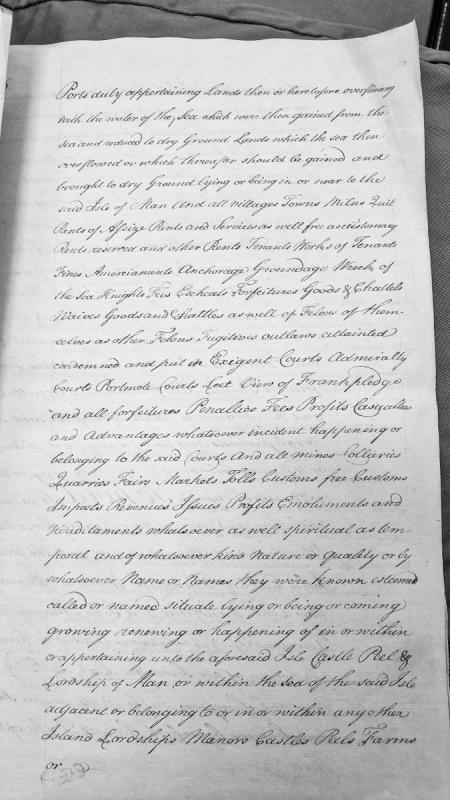 Ports duly appertaining Lands then or heretofore overflowing
with the water of the Sea which were then gained from the
Sea and reduced to dry Ground Lands which the sea then
overflowed or which thereafter should be gained and
brought to dry Ground lying or being in or near to the
said Isle of Man And all villages Towns Milns Quit
Rents of Assize Rents and Services as well free as customary
Rents reserved and other Rents Tenants Works of Tenants
Fines Amerciaments Anchorage Groundage Wreck of
the Sea Knights Fees Escheats Forfeitures Goods & Chattels
Waives Goods and Chattles as well of Felons of them-
selves as other Felons Fugitives outlaws attainted
condemned and put in Exigent Courts Admiralty
Courts Portmote Courts Leet View of Frankpledge
and all forfeitures Penalties Fees Profits Casualties
and Advantages whatsoever incident happening or
belonging to the said Courts And all mines Collieries
Quarries Fairs Markets Tolls Customs free Customs
Imposts Revenues Issues Profits Emoluments and
Hereditaments whatsoever as well spiritual as tem-
poral and of whatsoever kind Nature or Quality or by
whatsoever Name or Names they were known esteemed
called or named situate lying or being or coming
growing renewing or happening of in or within
or appertaining unto the aforesaid Isle Castle Peel &
Lordship of Man or within the sea of the said Isle
adjacent or belonging to or in or within any other
Island Lordships Manors Castles Peels Farms
or